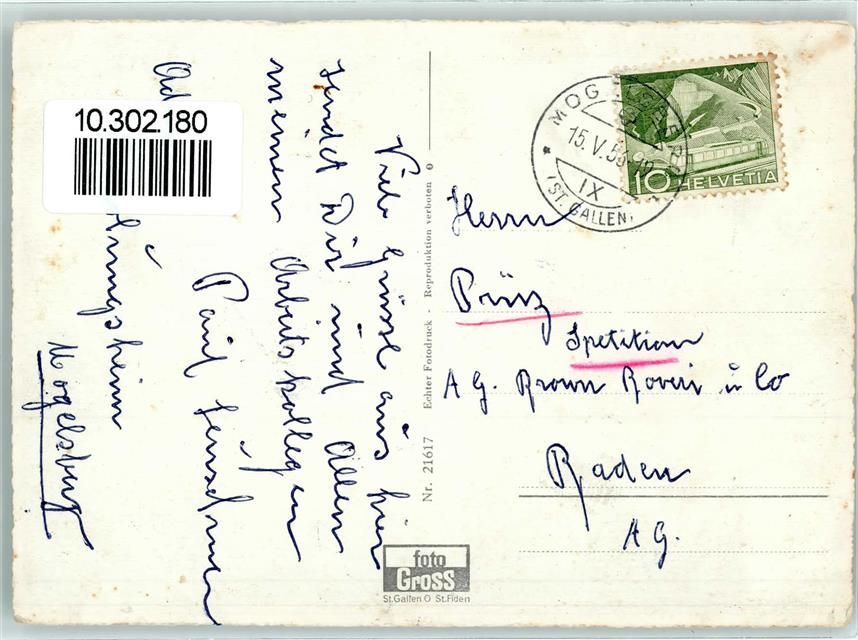 Viele Grüsse aus hier
sendet Dir und Allen
meinen Arbeitskollegen
Paul
Ad
Mogelsberg
10.302.180
Nr. 21617 Echter Fotodruck - Reproduktion verboten
foto
Gross
St.Gallen O St.Fiden
MOGELSBERG
15.V.53
IX
(ST. GALLEN)
10 HELVETIA
Herrn
Prinz
Spetition
A G. Brown Boveri u Co
Baden
A G.